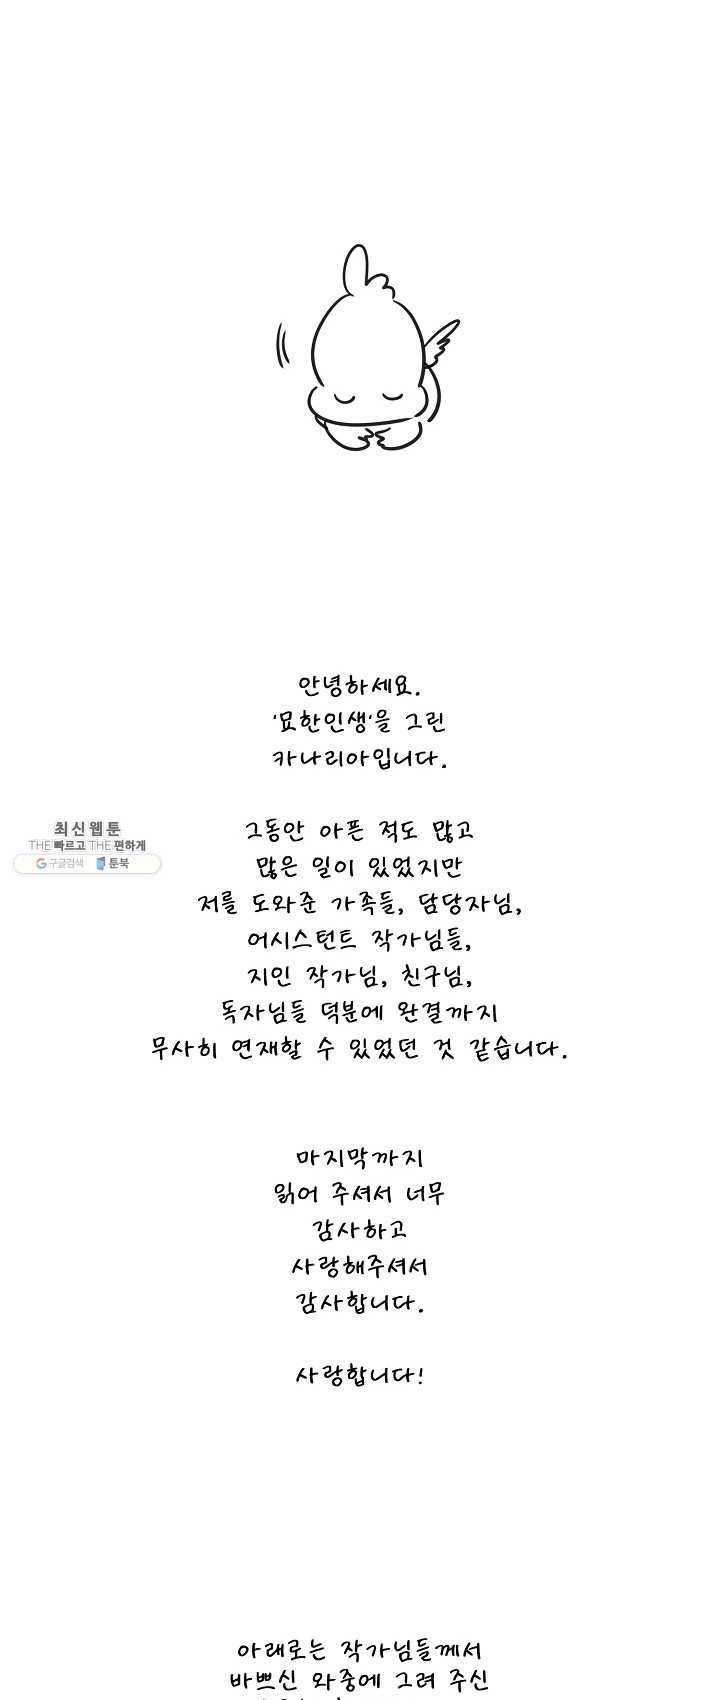 안녕하세요.
'묘한인생'을 그린
카나리아입니다.
그동안 아픈 적도 많고
많은 일이 있었지만
저를 도와준 가족들, 담당자님,
어시스턴트 작가님들,
지인 작가님, 친구님,
독자님들 덕분에 완결까지
무사히 연재할 수 있었던 것 같습니다.
최신웹툰
THE 빠르고 THE 편하게
구글검색 툰북
마지막까지
읽어 주셔서 너무
감사하고
사랑해주셔서
감사합니다.
사랑합니다!
아래로는 작가님들께서
바쁘신 와중에 그려 주신